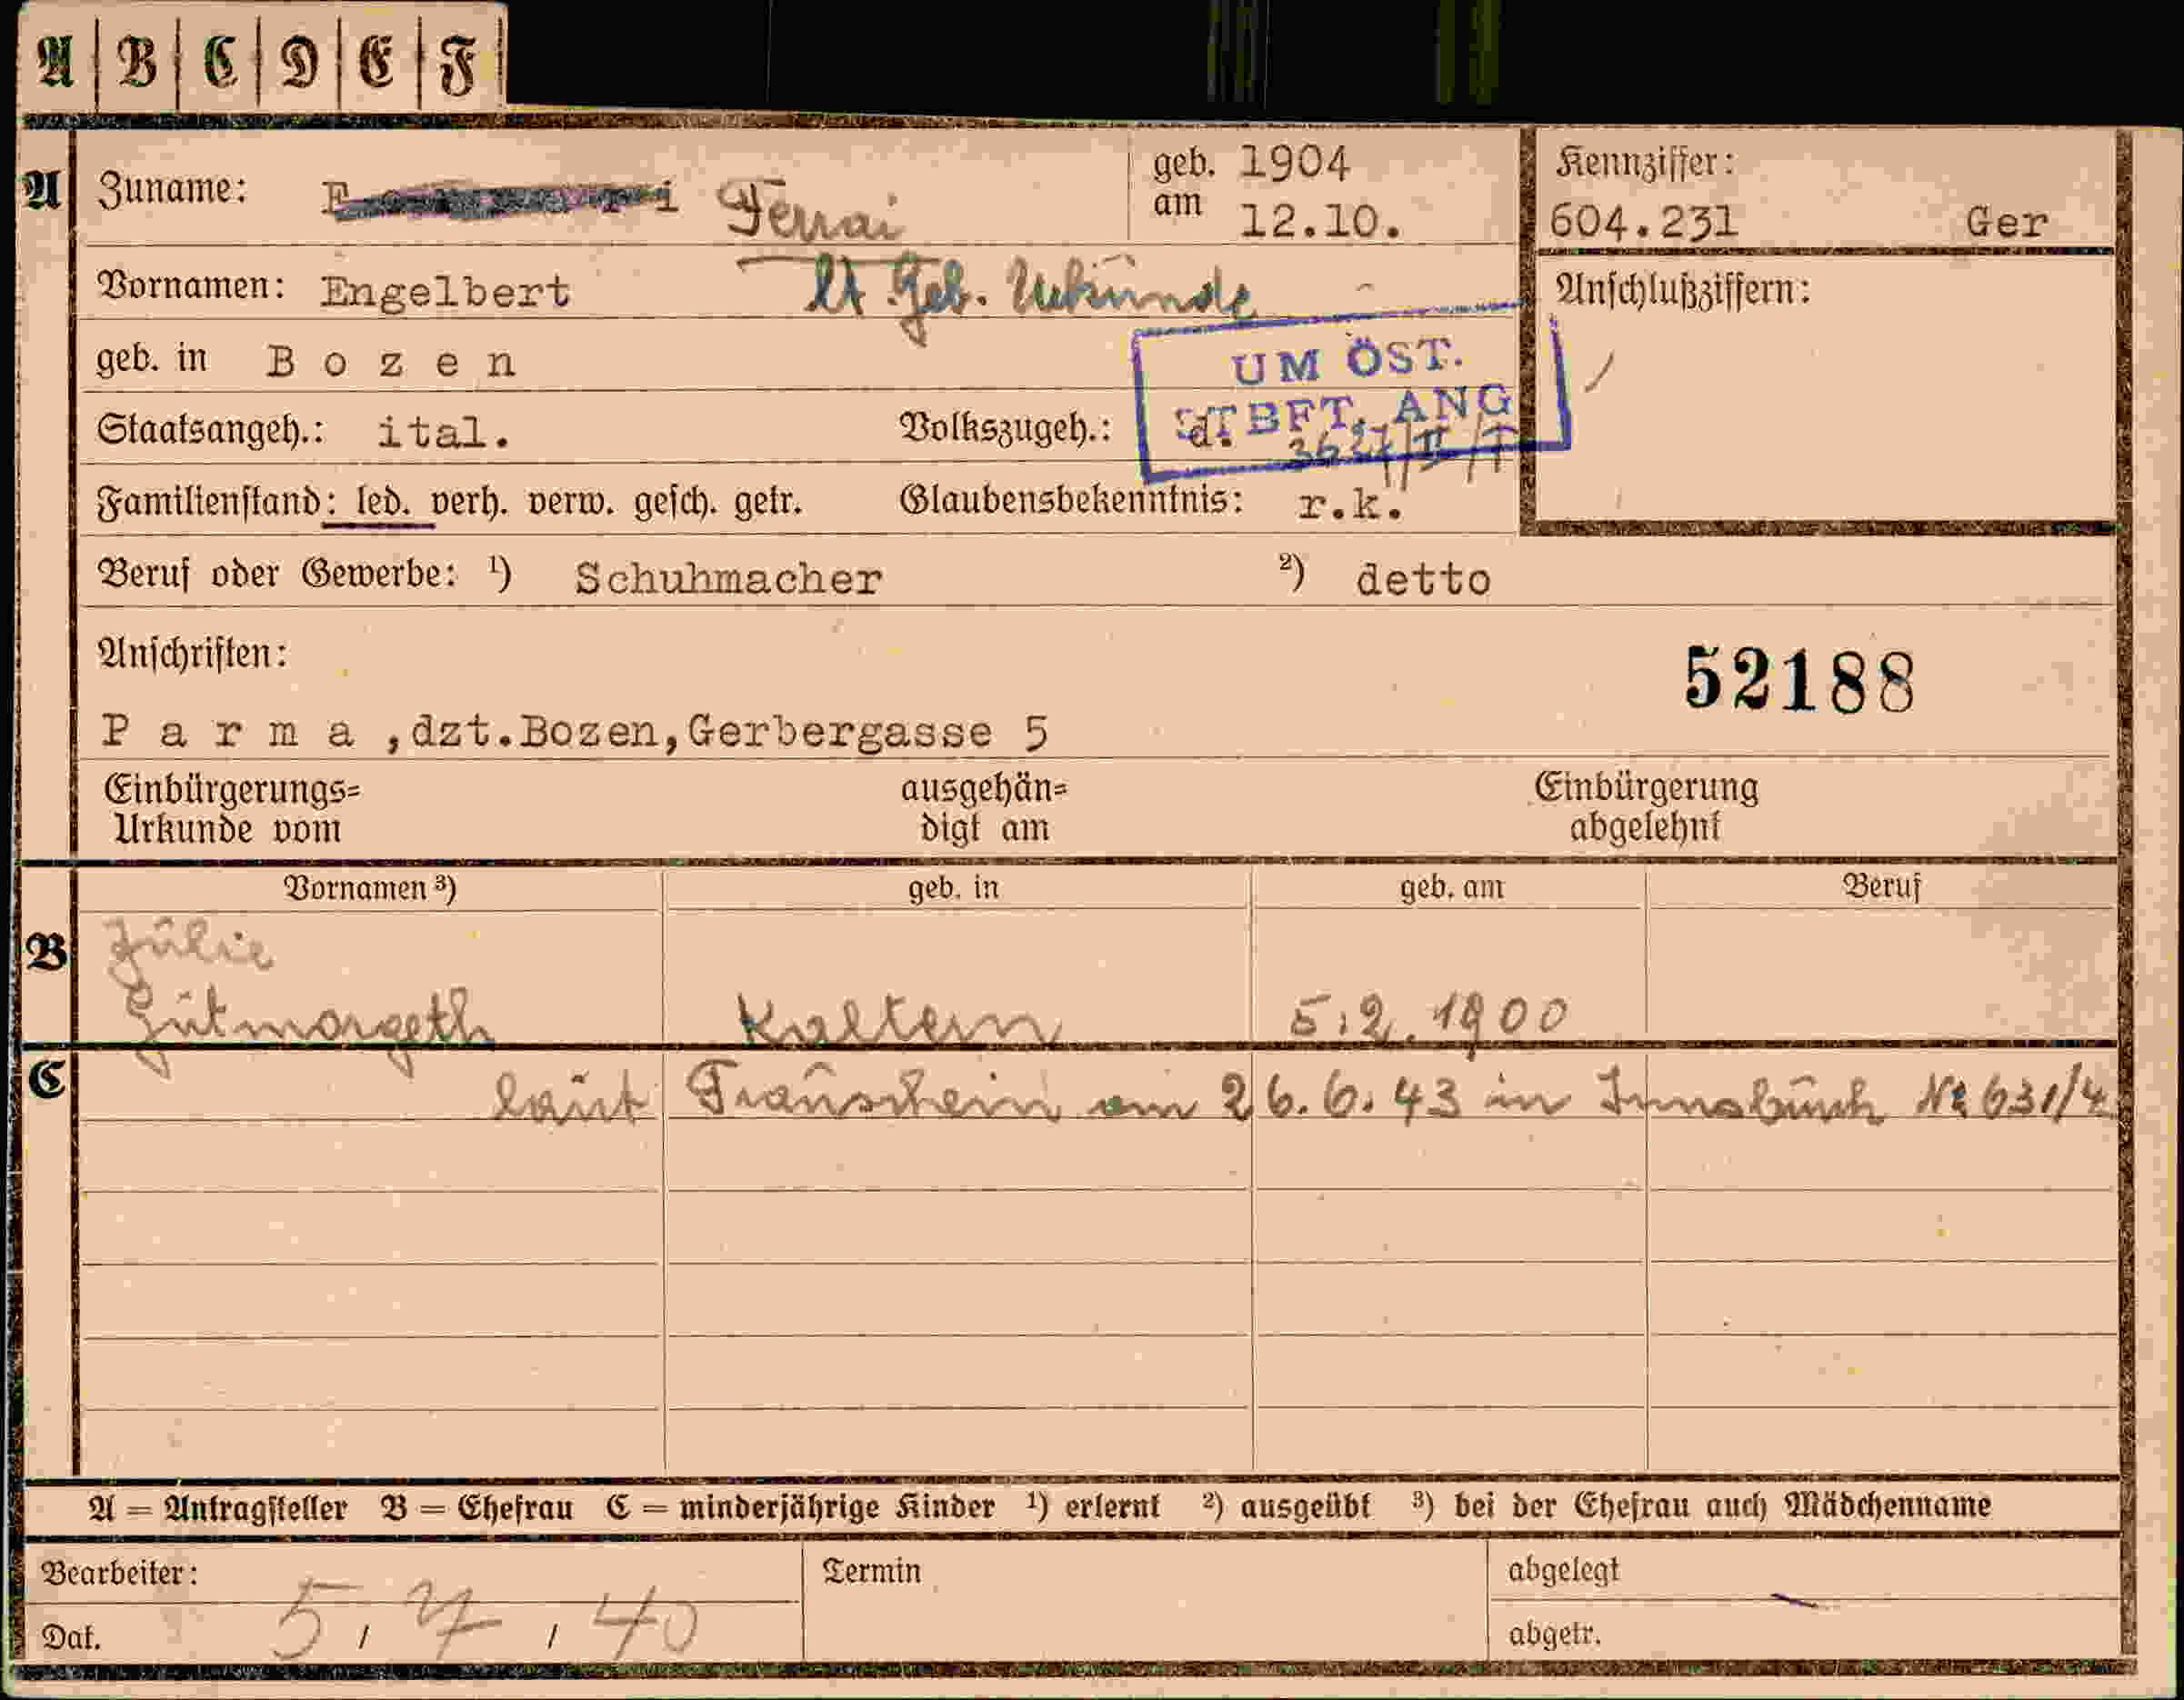 A B C D E F
A Zuname: Ferrai geb. am 1904 12.10. Kennziffer: 604.231 Ger
Vornamen: Engelbert lt Geb. Urkunde Anschlußziffern:
geb. in Bozen
UM ÖST.
STBFT. ANG
Staatsangeh.: ital. Volkszugeh.: d.
Familienstand: led. verh. verw. gesch. getr. Glaubensbekenntnis: r.k.
Beruf oder Gewerbe: ¹) Schuhmacher ²) detto
Anschriften:
52188
Parma, dzt.Bozen,Gerbergasse 5
Einbürgerungs= ausgehän= Einbürgerung
Urkunde vom digt am abgelehnt
Vornamen ³) geb. in geb. am Beruf
B Julie
Gutmorgeth Kaltern 5.2.1900
C laut Trauschein am 26.6.43 in Innsbruck № 631/4
A = Antragsteller B = Ehefrau C = minderjährige Kinder ¹) erlernt ²) ausgeübt ³) bei der Ehefrau auch Mädchenname
Bearbeiter: Termin abgelegt
Dat. 5/7/40 abgetr.